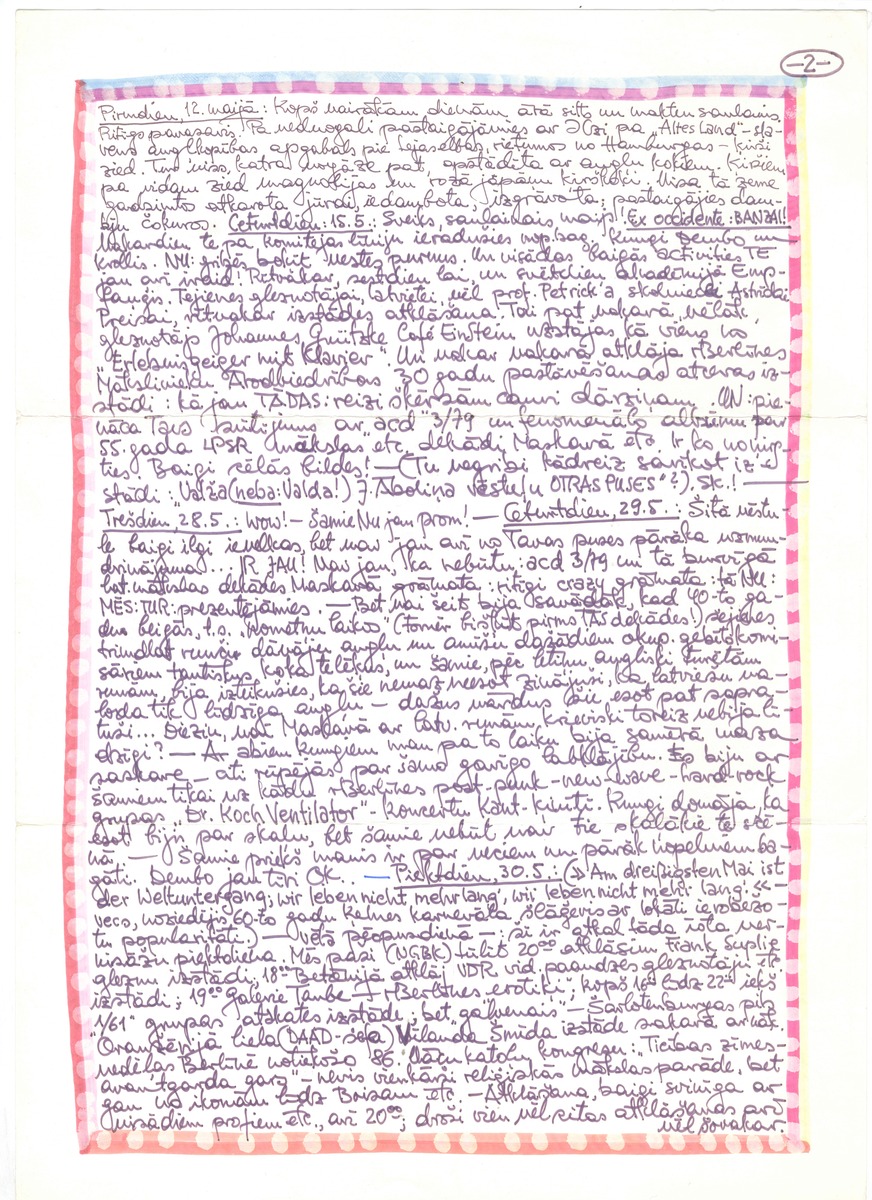 -2-
Pirmdien, 12. maijā: Kopš vairākām dienām ārā silts un makten saulains.
Rūtīgs pavasaris! Pa nedēļnogali pastaigājāmies ar Əlzi pa "Altes Land" - sla-
vens augļkopības apgabals pie Lejaselbas, rietumos no Hamburgas - ķirši
zied. Tur viss, katra pat, apstādīta ar augļu kokiem. Ķiršiem
pa vidam zied magnolijas un rozā japāņu ķirškoki. Visa tā zeme
gadsimtos atkarota jūrai, iedambēta, izgrāvota; pastaigājies dam-
bju čokuros. Ceturtdien: 15.5.: Sveiks, saulainais maijs! Ex occidente: BANZAI!
Vakardien te pa komitejas līniju ieradušies kungi Dembo un
Krollis. NU: gribēs bakīt vestes purnus. Un visādas baigās activities TE
jau arī ir! Rītvakar, sestdien lai, un svētdien akadēmijā Emp-
fangis. Tejienes gleznotājai, latvietei, vēl prof. Petrick'a skolniecei Astrīdai
Preisai, rītvakar izstādes atklāšana. Tai pat vakarā, vēlāk,
gleznotājs Johannes Grützke Cafe Einstein uzstājas kā viens no
"Erlebnisgeiger mit Klavier". Un vakar vakarā atklāja rBerlīnes
Mākslinieku Arodbiedrības 30 gadu pastāvēšanas atceres iz-
stādi: kā jau TĀDAS: reizi šķērsām cauri dārziņam. UN: pie-
nāca Tavs sūtījums ar "acd" 3/79 un fenomenālo albumu par
55. gada LPSR "mākslas" etc. dekādi Maskavā etc. Ir ko no
ties! Baigi cēlās bildes! - (Tu negribi kādreiz savākot iz-
stādi: "Valža (neba: Valda!) J. Āboliņa vēstuļu OTRAS PUSES"?). Sk.! -
Trešdien, 28.5.: Wow! - Šamie Nu jau prom! - Ceturtdien, 29.5.: Šitā vēstu-
le baigi ilgi ievelkas, bet nav jau arī no Tavas puses pārāka uzmun-
drinājuma... IR JAU! Nav jau, ka nebūtu: acd 3/79 un tā burvīgā
mākslas dekādes Maskavā grāmata: rūtīgi crazy grāmata: tā NU:
MĒS: TUR: prezentējāmies. - Bet, vai šeit bija savādāk, kad 40-to ga-
du beigās, t.s. "nometņu laikos" (tomēr krietni pirms TĀS dekādes!) tejienes
trimdlat. runču dāvāja angļu un amīšu dažādiem okup. gebītskomi-
sāriem tautiskus koka šķīvjus, un šamie, pēc lētiņu angliski turētām
runām, bija izteikušies, ka šie nemaz neesot zinājuši, ka latviešu va-
loda tik līdzīga angļu - dažus vārdus šie esot pat sapra-
tuši... Diezin, vai Maskavā ar latv. runām, krieviski toreiz nebija lī-
dzīgi? - Ar abiem kungiem man pa to laiku bija samērā maza
saskare - ati rūpējās par šamo garīgo labklājību. Es biju ar
šamiem tikai uz kādu rBerlīnes post-punk-new-wave-hard-rock
grupas "Dr. Koch Ventilator" - koncertu Kant-kinītī. Kungi domāja, ka
esot bijis par skaļu, bet šamie nebūt nav tie skaļākie te scē-
nā. - Šamie priekš manis ir par veciem un pārāk nopelniem ba-
gāti. Dembo jau tīri OK... - Piektdien, 30.5.: (»Am dreißigsten Mai ist
der Weltuntergang; wir leben nicht mehr lang, wir leben nicht mehr lang!«-
vecs, noziedējis 60-to gadu Ķelnes karnevāla šlāgeris ar lokāli ierobežo-
tu popularitāti.) - vēlā pēcpusdienā -: Šī ir atkal tāda īsta ver-
nisāžu piektdiena. Mēs paši (NGBK) tūlīt 20⁰⁰ atklāsim Frank Suplie
gleznu izstādi; 18⁰⁰ Betānijā atklāj VDR vid. paaudzes gleznotāju etc.
izstādi; 19⁰⁰ Galerie Taube - "rBerlīnes erotiķi", kopš 16⁰⁰ līdz 22⁰⁰ iekš
"1/61" grupas atskates izstāde; bet "galvenais" - Šarlotenburgas pils
Oranžērijā liela (DAAD-šefa) Vīlanda Šmīda izstāde sakarā ar kat.
nedēļas Berlīnē notiekošo 86. Vācu katoļu kongresu: "Ticības zīmes -
avantgarda gars" - nevis vienkārši reliģiskās mākslas parāde, bet
gan no ikonām līdz Boisam etc. - Atklāšana, baigi svinīga ar
visādiem profiem etc., arī 20⁰⁰; droši vien vēl citas atklāšanas arī
vēl šovakar.